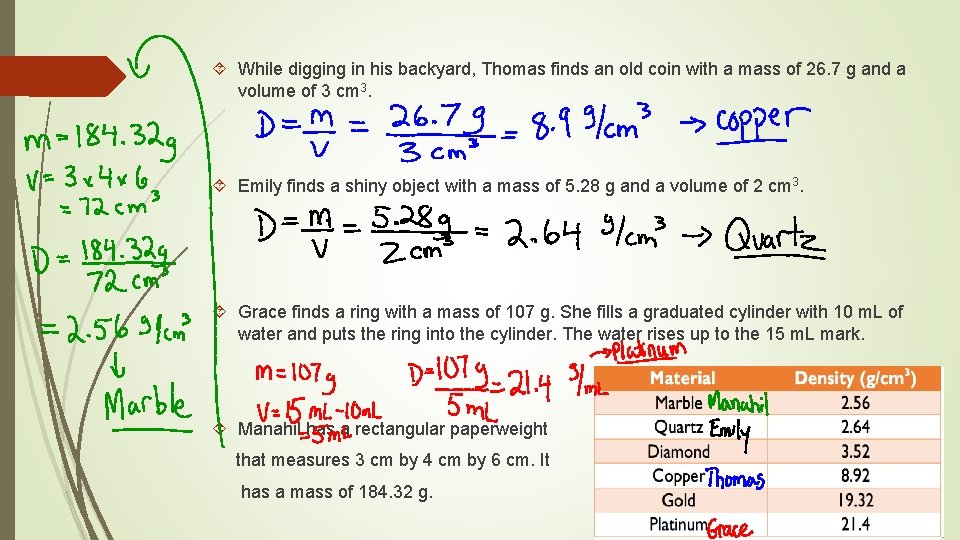 While digging in his backyard, Thomas finds an old coin with a mass of 26.7 g and a
volume of 3 cm³.
D = m/V = 26.7 g / 3 cm³ = 8.9 g/cm³ → copper
Emily finds a shiny object with a mass of 5.28 g and a volume of 2 cm³.
D = m/V = 5.28 g / 2 cm³ = 2.64 g/cm³ → Quartz
Grace finds a ring with a mass of 107 g. She fills a graduated cylinder with 10 mL of
water and puts the ring into the cylinder. The water rises up to the 15 mL mark.
m = 107 g
V = 15 mL - 10 mL
= 5 mL
D = 107 g / 5 mL = 21.4 g/mL
→ Platinum
Manahil has a rectangular paperweight
that measures 3 cm by 4 cm by 6 cm. It
has a mass of 184.32 g.
m = 184.32 g
V = 3 x 4 x 6
= 72 cm³
D = 184.32 g / 72 cm³
= 2.56 g/cm³
↓
Marble
Material Density (g/cm³)
Marble Manahil 2.56
Quartz Emily 2.64
Diamond 3.52
Copper Thomas 8.92
Gold 19.32
Platinum Grace 21.4